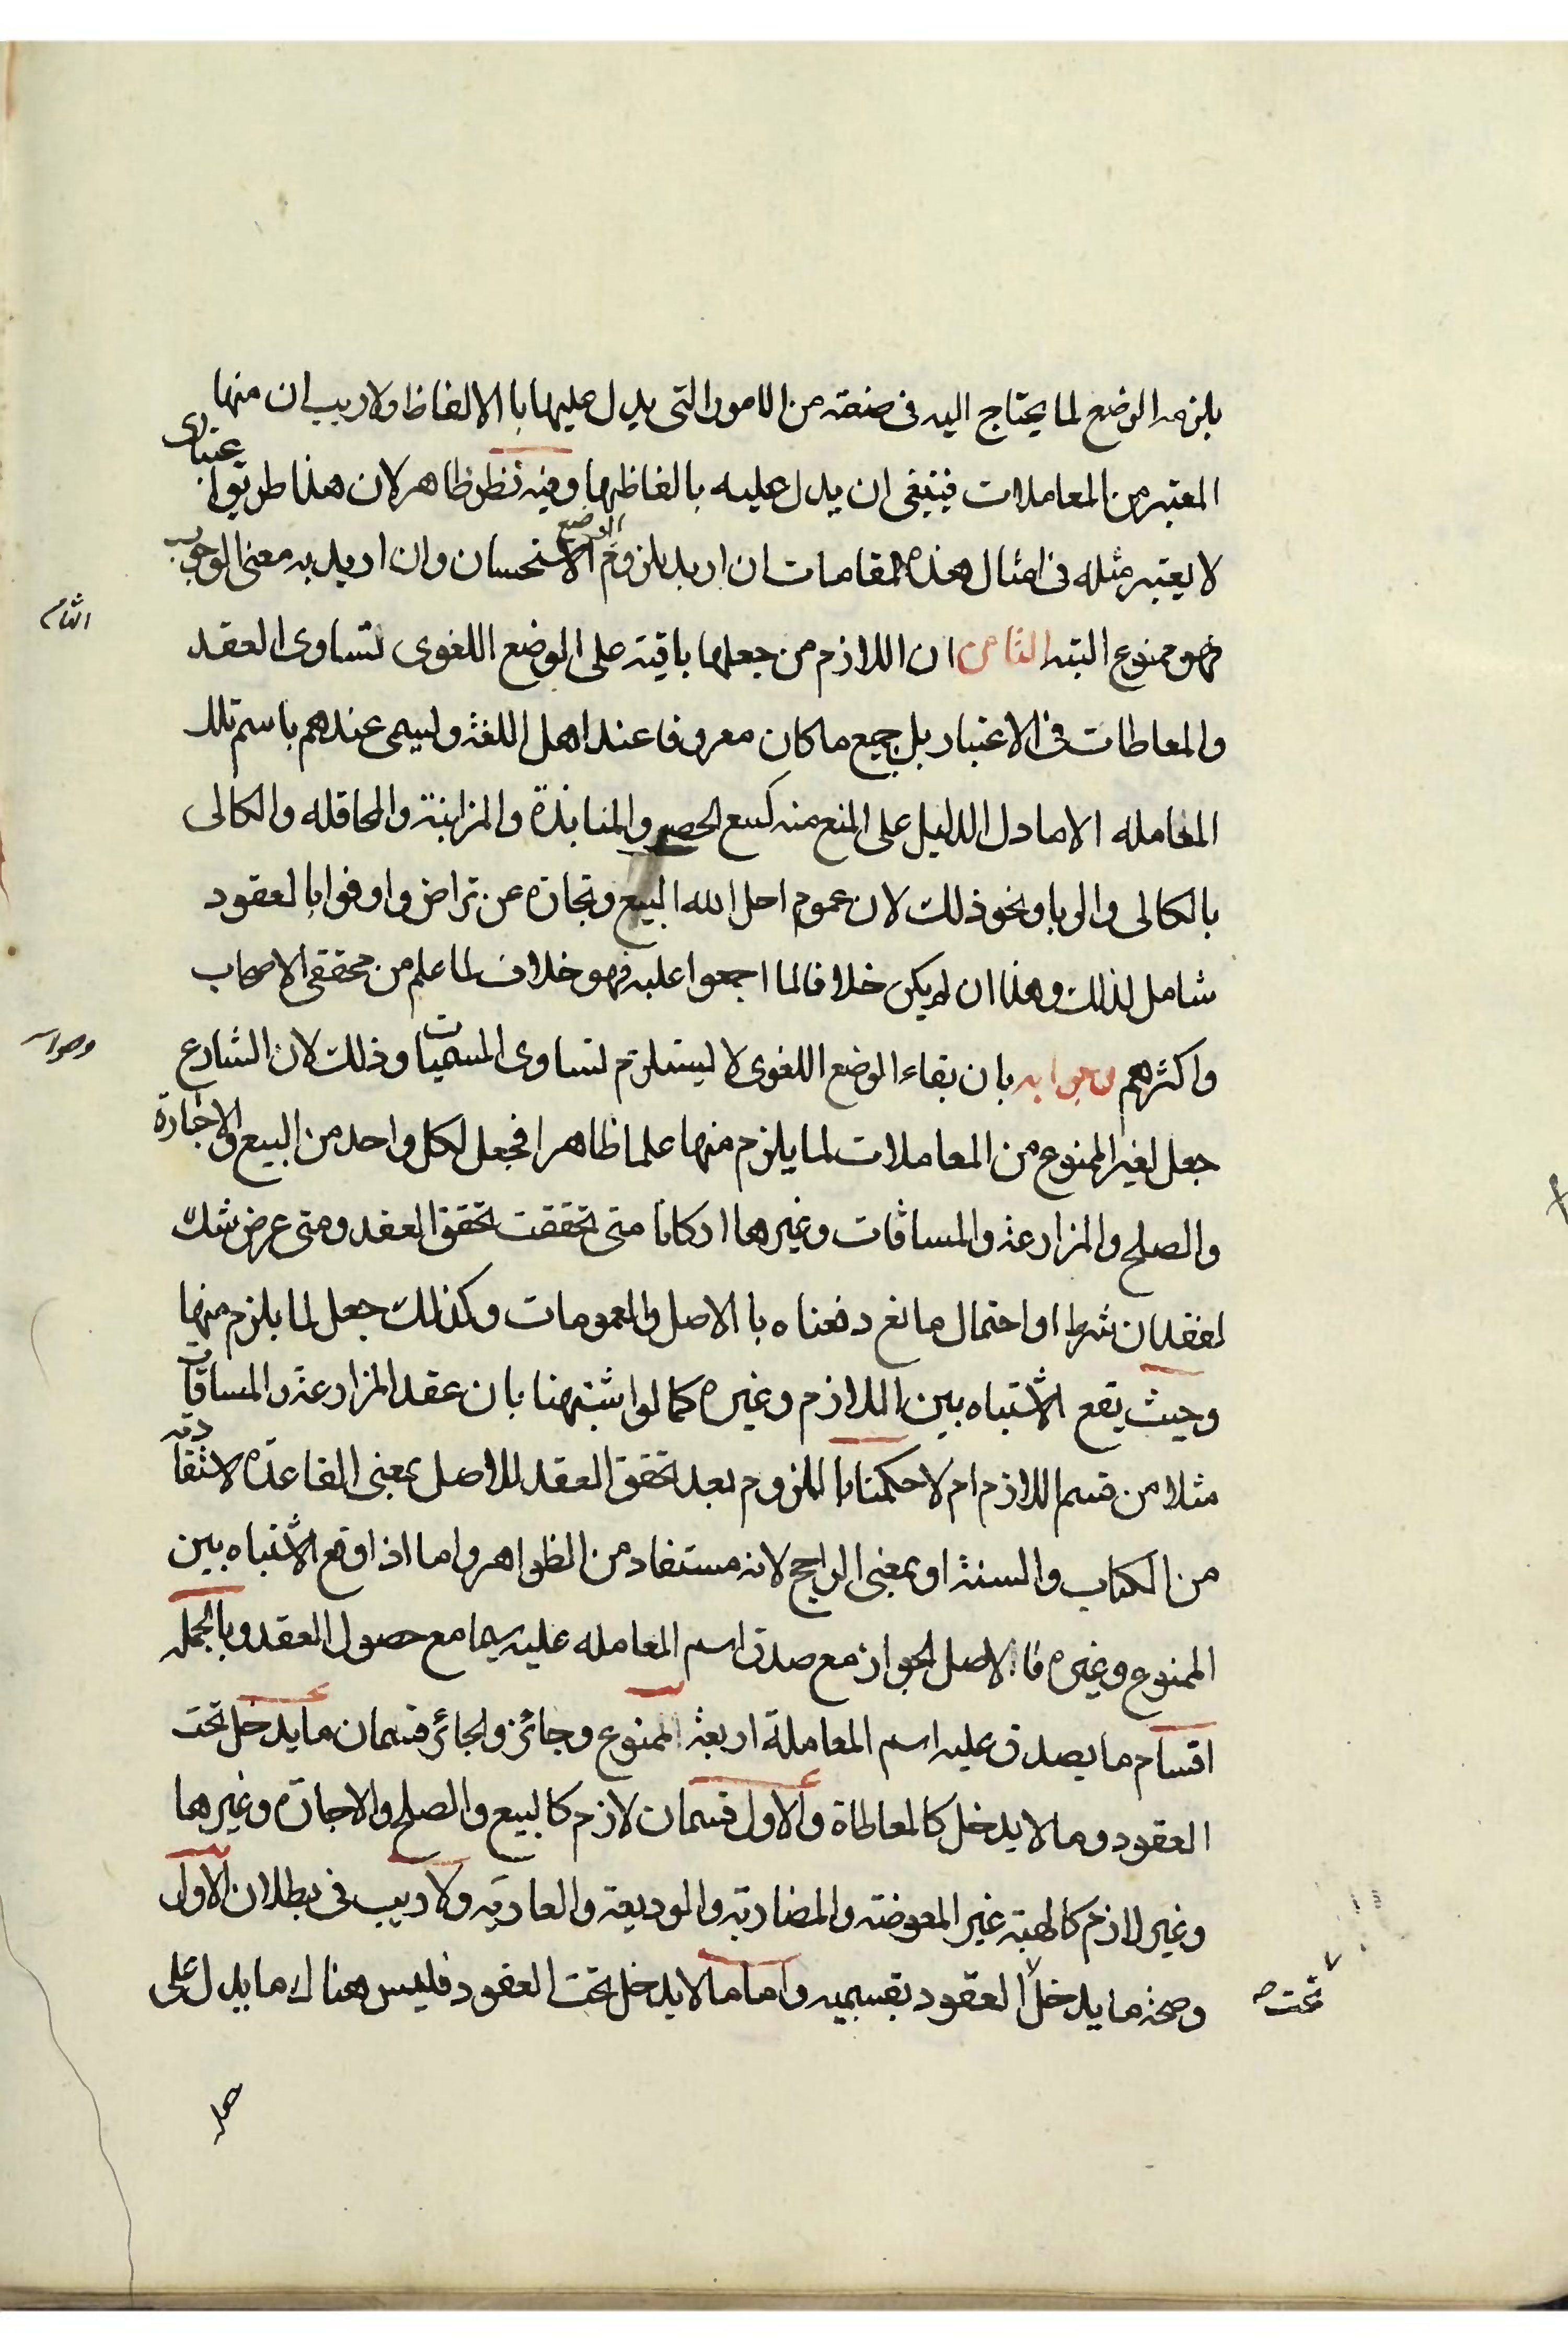 يلزمه الوضع لما يحتاج اليه في صنعته من الامور التي يدل عليها با الالفاظ ولا ريب ان منها
المعتبر من المعاملات فينبغي ان يدل عليه بالفاظها وفيه نظر ظاهر لان هذا طريق اعتباري
لا يعتبر مثله في امثال هذه المقامات ان اريد بلزوم الوضع الاستحسان وان اريد به معنى الوجوب
فهو ممنوع البته الثامن ان اللازم من جعلها باقية على الوضع اللغوى تساوى العقد
والمعاطات في الاعتبار بل جميع ما كان معروفا عند اهل اللغة ويسمى عندهم باسم تلك
المعامله الا ما دل الدليل على المنع منه كبيع الحصى والمنابذة والمزابنة والمحاقله والكالى
بالكالى والربا ونحو ذلك لان عموم احل الله البيع وتجارة عن تراض واوفوا بالعقود
شامل لذلك وهذا ان لم يكن خلافا لما اجمعوا عليه فهو خلاف لما علم من محققى الاصحاب
واكثرهم وجوابه بان بقاء الوضع اللغوى لا يستلزم تساوى المسميات وذلك لان الشارع
جعل لغير الممنوع من المعاملات لما يلزم منها علما ظاهرا فجعل لكل واحد من البيع والاجارة
والصلح والمزارعة والمساقات وغيرها اركانا متى تحققت تحقق العقد ومتى عرض شك
لفقدان شرط او احتمال مانع دفعناه با الاصل والعمومات وكذلك جعل لما يلزم منها
وحيث يقع الاشتباه بين اللازم وغيره كما لو اشتبهنا بان عقد المزارعة والمساقات
مثلا من قسم اللازم ام لا حكمنا با اللزوم بعد تحقق العقد للاصل بمعنى القاعدة
من الكتاب والسنة او بمعنى الراجح لانه مستفاد من الظواهر واما اذا وقع الاشتباه بين
الممنوع وغيره فا الاصل الجواز مع صدق اسم المعامله عليه سيما مع حصول العقد وبالجمله
اقسام ما يصدق عليه اسم المعاملة اربعة الممنوع وجائز والجائز قسمان ما يدخل تحت
العقود وما لا يدخل كالمعاطاة والاول قسمان لازم كالبيع والصلح والاجارة وغيرها
وغير لازم كالهبة غير المعوضة والمضاربة والوديعة والعارية ولا ريب في بطلان الاول
وصحة ما يدخل العقود بقسميه واما ما لا يدخل تحت العقود فليس هناك ما يدل على
تحت
الثامن
وجوابه